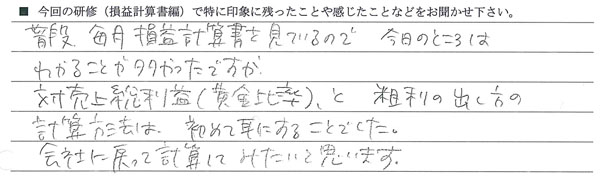 ■ 今回の研修（損益計算書編）で特に印象に残ったことや感じたことなどをお聞かせ下さい。
普段 毎月 損益計算書を見ているので 今日のところは
わかることが多かったですが、
対売上総利益(黄金比率)、と 粗利の出し方の
計算方法は、初めて耳にすることでした。
会社に戻って計算してみたいと思います。